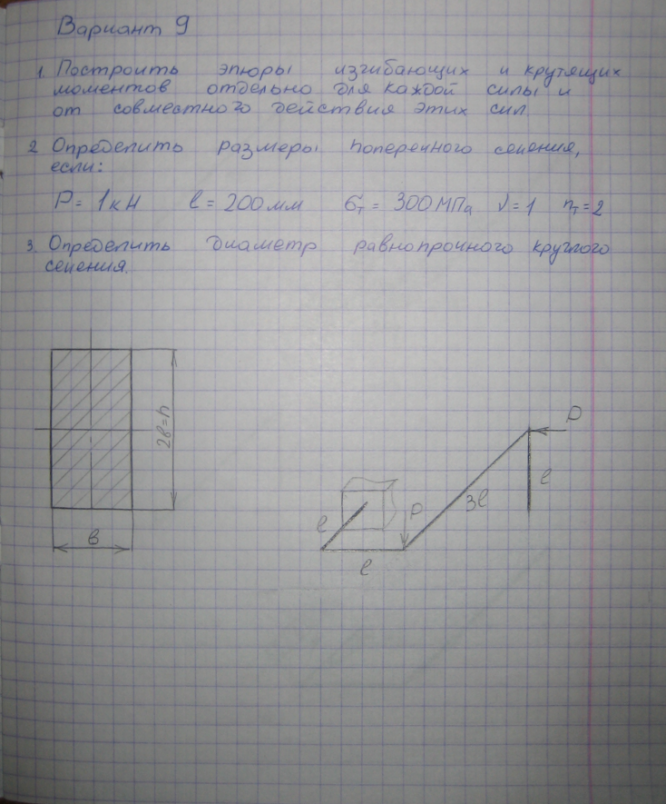 Вариант 9
1. Построить эпюры изгибающих и крутящих
моментов отдельно для каждой силы и
от совместного действия этих сил.
2 Определить размеры поперечного сечения,
если:
P = 1кН l = 200 мм σт = 300 МПа ν = 1 nт = 2
3. Определить диаметр равнопрочного круглого
сечения.
2в=h
в
P
l
3l
P
l
l